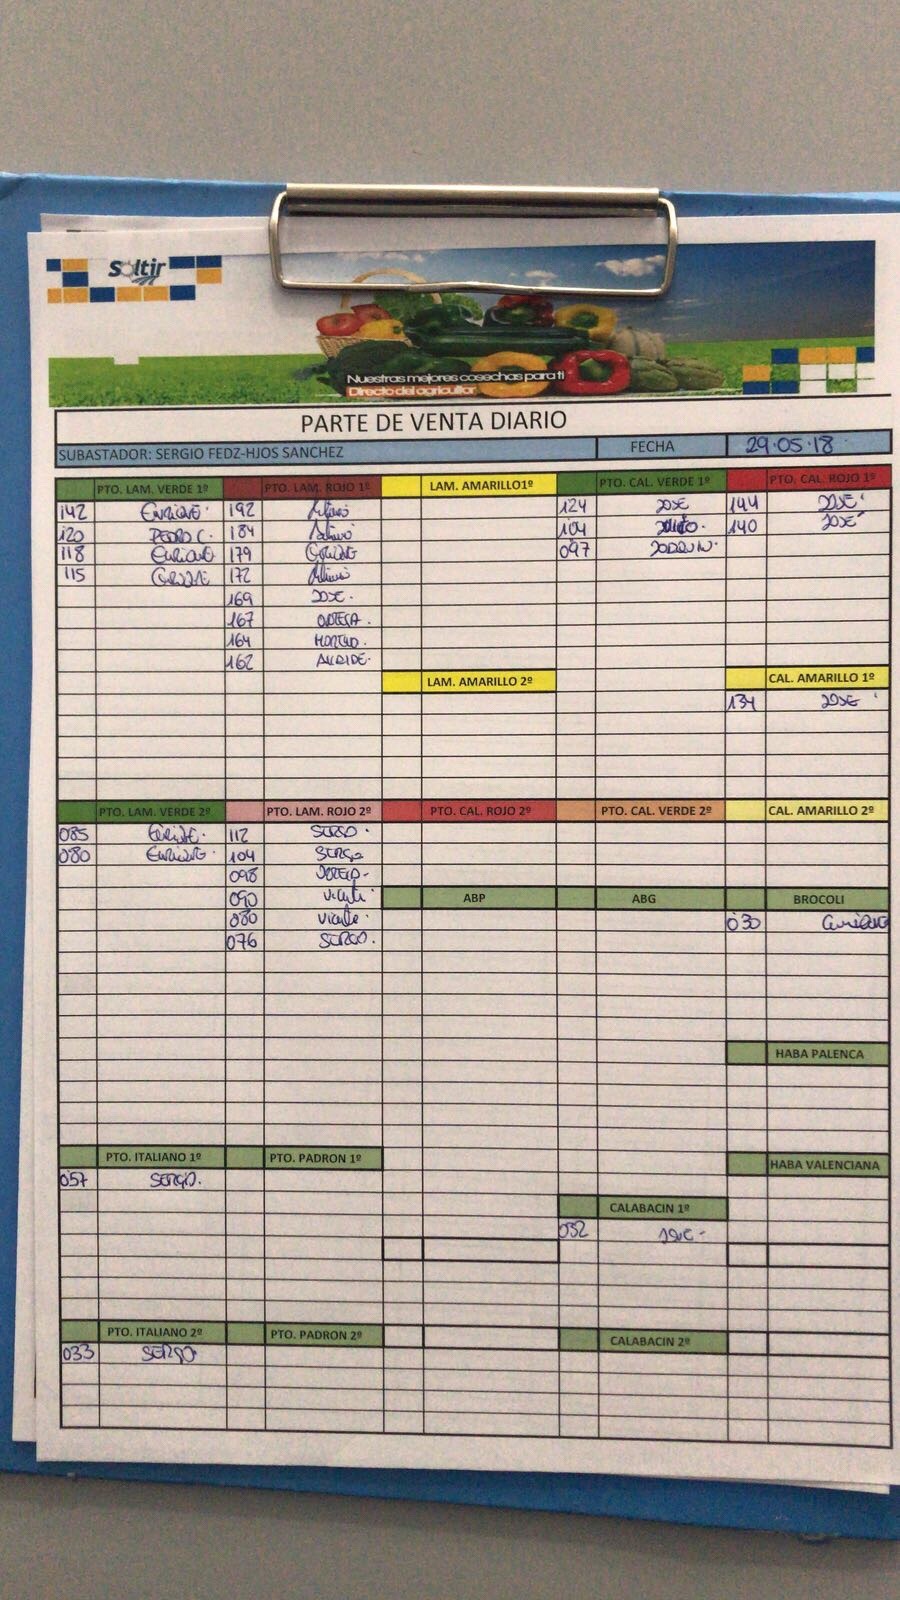 Soltir
Nuestras mejores cosechas para ti
Directo del agricultor
PARTE DE VENTA DIARIO
SUBASTADOR: SERGIO FEDZ-HJOS SANCHEZ FECHA 29.05.18
PTO. LAM. VERDE 1º PTO. LAM. ROJO 1º LAM. AMARILLO1º PTO. CAL. VERDE 1º PTO. CAL. ROJO 1º
142 ENRIQUE 192 124 JOSE 144 JOSE
120 PEDRO C. 184 104 140 JOSE
118 ENRIQUE 179 ENRIQUE 097 JOAQUIN
115 ENRIQUE 172
169 JOSE.
167 ORTEGA.
164 MORENO.
162
LAM. AMARILLO 2º CAL. AMARILLO 1º
134 JOSE
PTO. LAM. VERDE 2º PTO. LAM. ROJO 2º PTO. CAL. ROJO 2º PTO. CAL. VERDE 2º CAL. AMARILLO 2º
085 ENRIQUE. 112 SERGIO.
080 ENRIQUE. 104 SERGIO
098
090 Vicente
080 Vicente.
076 SERGIO.
ABP ABG BROCOLI
030
HABA PALENCA
PTO. ITALIANO 1º PTO. PADRON 1º HABA VALENCIANA
057 SERGIO.
CALABACIN 1º
032 JOSE-
PTO. ITALIANO 2º PTO. PADRON 2º CALABACIN 2º
033 SERGIO